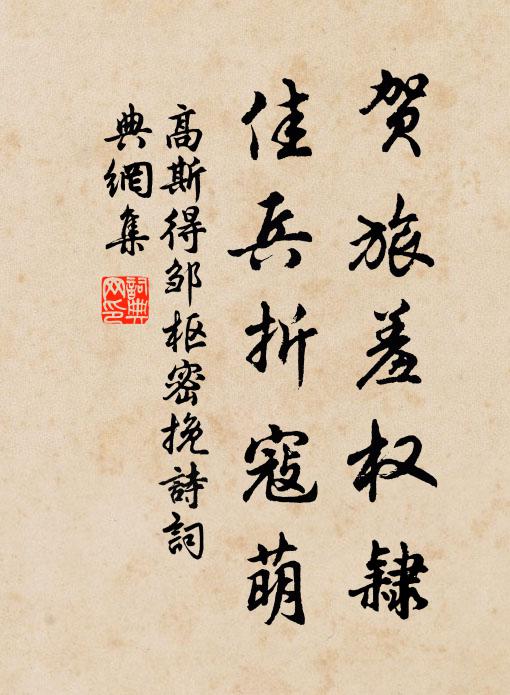 贺旅羞权隶
佳兵折寇萌
高斯得邹枢密挽詩詞
典網集
詞典
网印